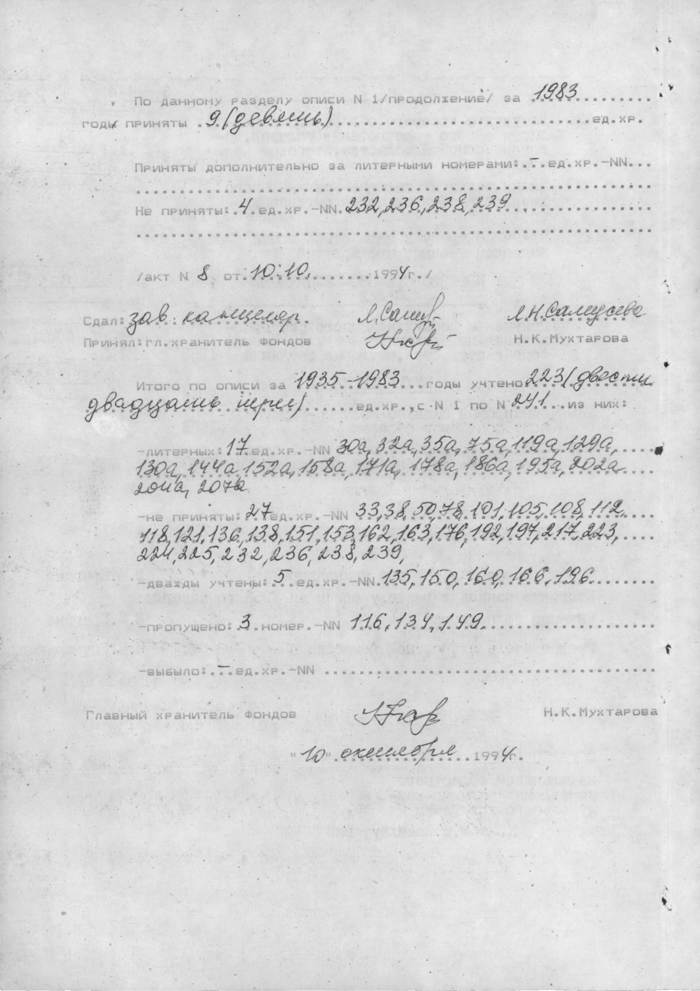 По данному разделу описи N 1/продолжение/ за 1983
годы приняты 9 (девять) ед.хр.
Приняты дополнительно за литерными номерами: – ед.хр.-NN
Не приняты: 4 ед.хр.-NN 232, 236, 238, 239
/акт N 8 от 10.10. 1994г./
Сдал: зав. канцеляр.
Принял: гл.хранитель фондов Н.К.Мухтарова
Итого по описи за 1935-1983 годы учтено 223 (двести
двадцать три) ед.хр., с N 1 по N 241 из них:
-литерных: 17 ед.хр.-NN 30а, 32а, 35а, 75а, 119а, 129а,
130а, 144а, 152а, 158а, 171а, 178а, 186а, 195а, 202а
204а, 207а
-не приняты: 27 ед.хр.-NN 33, 38, 50, 78, 101, 105, 108, 112
118, 121, 136, 138, 151, 153, 162, 163, 176, 192, 197, 217, 223,
224, 225, 232, 236, 238, 239,
-дважды учтены: 5 ед.хр.-NN 135, 150, 160, 166, 196
-пропущено: 3 номер.-NN 116, 134, 149
-выбыло: – ед.хр.-NN
Главный хранитель фондов Н.К.Мухтарова
"10" октября 1994г.